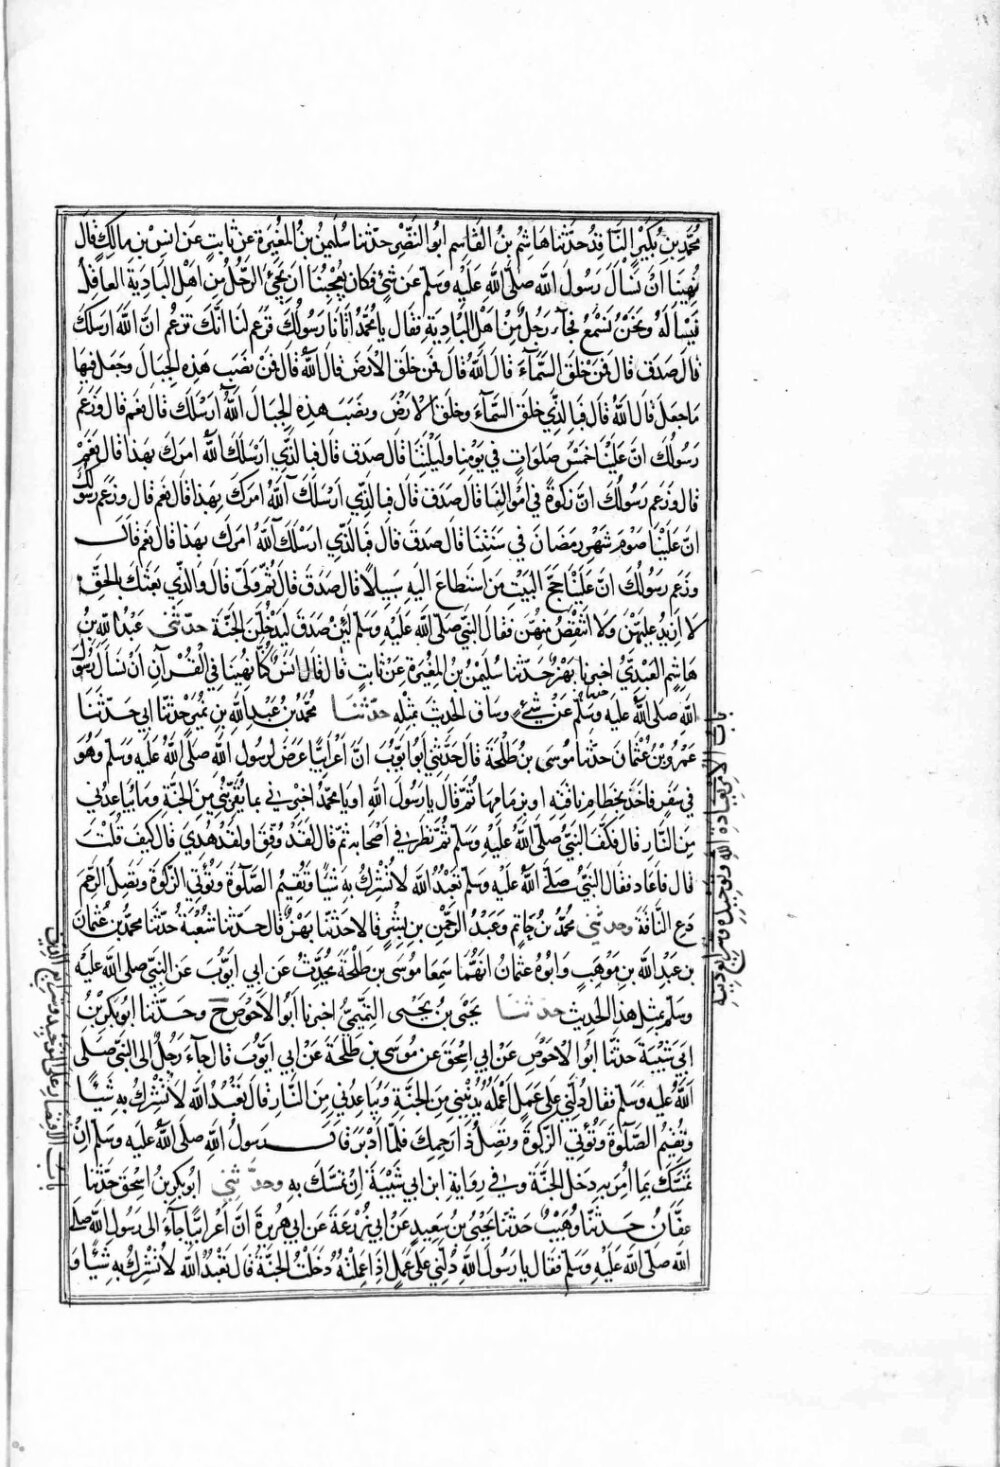 محمد بن بكير الناقد حدثنا هاشم بن القاسم ابو النضر حدثنا سليمن بن المغيرة عن ثابت عن انس بن مالك قال
نهينا ان نسأل رسول الله صلى الله عليه وسلم عن شئ فكان يعجبنا ان يجئ الرجل من اهل البادية العاقل
فيسأله ونحن نسمع فجاء رجل من اهل البادية فقال يا محمد اتانا رسولك فزعم لنا انك تزعم ان الله ارسلك
قال صدق قال فمن خلق السماء قال الله قال فمن خلق الارض قال الله قال فمن نصب هذه الجبال وجعل فيها
ما جعل قال الله قال فبالذي خلق السماء وخلق الارض ونصب هذه الجبال آلله ارسلك قال نعم قال وزعم
رسولك ان علينا خمس صلوات في يومنا وليلتنا قال صدق قال فبالذي ارسلك آلله امرك بهذا قال نعم
قال وزعم رسولك ان زكوة في اموالنا قال صدق قال فبالذي ارسلك آلله امرك بهذا قال نعم قال وزعم رسولك
ان علينا صوم شهر رمضان في سنتنا قال صدق قال فبالذي ارسلك آلله امرك بهذا قال نعم قال
وزعم رسولك ان علينا حج البيت من استطاع اليه سبيلا قال صدق قال ثم ولى قال والذي بعثك بالحق
لا ازيد عليهن ولا انقص منهن فقال النبي صلى الله عليه وسلم لئن صدق ليدخلن الجنة حدثني عبد الله بن
هاشم العبدي اخبرنا بهز حدثنا سليمن بن المغيرة عن ثابت قال قال انس كنا نهينا في القرآن ان نسأل رسول
الله صلى الله عليه وسلم عن شئ وساق الحديث بمثله حدثنا محمد بن عبد الله بن نمير حدثنا ابي حدثنا
عمرو بن عثمان حدثنا موسى بن طلحة قال حدثني ابو ايوب ان أعرابيا عرض لرسول الله صلى الله عليه وسلم وهو
في سفر فاخذ بخطام ناقته او بزمامها ثم قال يا رسول الله او يا محمد اخبرني بما يقربني من الجنة وما يباعدني
من النار قال فكف النبي صلى الله عليه وسلم ثم نظر في اصحابه ثم قال لقد وفق او لقد هدي قال كيف قلت
قال فاعاد فقال النبي صلى الله عليه وسلم تعبد الله لا تشرك به شيئا وتقيم الصلوة وتؤتي الزكوة وتصل الرحم
دع الناقة وحدثني محمد بن حاتم وعبد الرحمن بن بشر قالا حدثنا بهز قال حدثنا شعبة حدثنا محمد بن عثمان
بن عبد الله بن موهب وابوه عثمان انهما سمعا موسى بن طلحة يحدث عن ابي ايوب عن النبي صلى الله عليه
وسلم بمثل هذا الحديث حدثنا يحيى بن يحيى التميمي اخبرنا ابو الاحوص ح وحدثنا ابو بكر بن
ابي شيبة حدثنا ابو الاحوص عن ابي اسحق عن موسى بن طلحة عن ابي ايوب قال جاء رجل الى النبي صلى
الله عليه وسلم فقال دلني على عمل اعمله يدنيني من الجنة ويباعدني من النار قال تعبد الله لا تشرك به شيئا
وتقيم الصلوة وتؤتي الزكوة وتصل ذا رحمك فلما ادبر قال رسول الله صلى الله عليه وسلم ان
تمسك بما امر به دخل الجنة وفي رواية ابن ابي شيبة ان تمسك به وحدثني ابو بكر بن اسحق حدثنا
عفان حدثنا وهيب حدثنا يحيى بن سعيد عن ابي زرعة عن ابي هريرة ان أعرابيا جاء الى رسول الله صلى
الله صلى الله عليه وسلم فقال يا رسول الله دلني على عمل اذا عملته دخلت الجنة قال تعبد الله لا تشرك به شيئا و
باب الامر بعبادة الله وتوحيده
باب الاقتصار على التوحيد